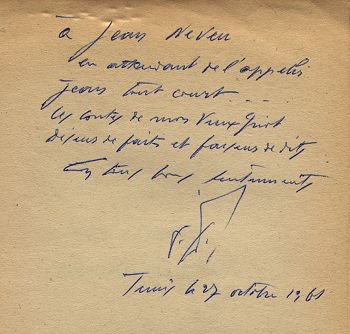 à Jean Neveu
en attendant de l'appeler
Jean tout court ....
les contes de mos vieux Griot
diseurs de faits et faiseurs de dits
En tous bons sentiments
Tunis le 27 octobre 1961